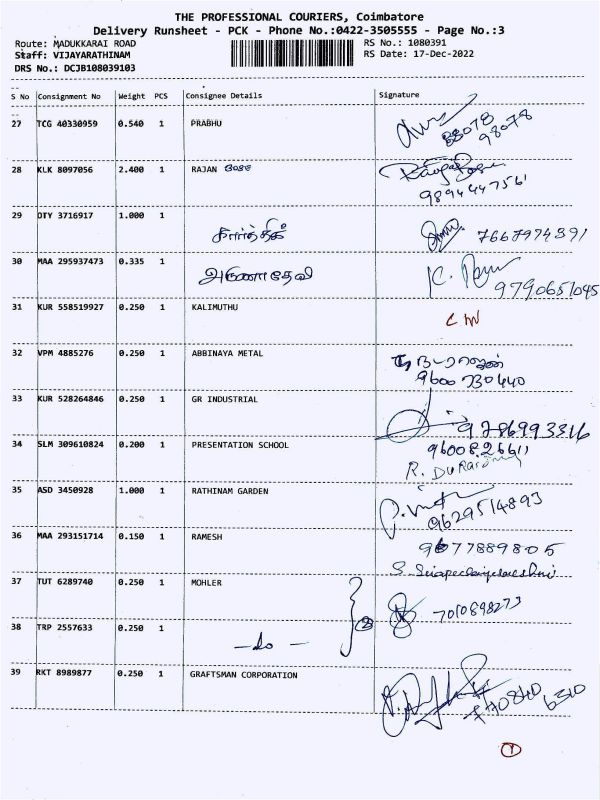 THE PROFESSIONAL COURIERS, Coimbatore
Delivery Runsheet - PCK - Phone No.:0422-3505555 - Page No.:3
Route: MADUKKARAI ROAD RS No.: 1080391
Staff: VIJAYARATHINAM RS Date: 17-Dec-2022
DRS No.: DCJB108039103
S No Consignment No Weight PCS Consignee Details Signature
27 TCG 40330959 0.540 1 PRABHU
98078
28 KLK 8097056 2.400 1 RAJAN
9894447561
29 OTY 3716917 1.000 1 கார்த்திக் 7667974391
30 MAA 295937473 0.335 1 அருணாதேவி
9790651045
31 KUR 558519927 0.250 1 KALIMUTHU
32 VPM 4885276 0.250 1 ABBINAYA METAL
9600730440
33 KUR 528264846 0.250 1 GR INDUSTRIAL
9786993316
34 SLM 309610824 0.200 1 PRESENTATION SCHOOL 9600826611
35 ASD 3450928 1.000 1 RATHINAM GARDEN
9629514893
36 MAA 293151714 0.150 1 RAMESH 9677889805
37 TUT 6289740 0.250 1 MOHLER
7010898273
38 TRP 2557633 0.250 1 -do-
39 RKT 8989877 0.250 1 GRAFTSMAN CORPORATION